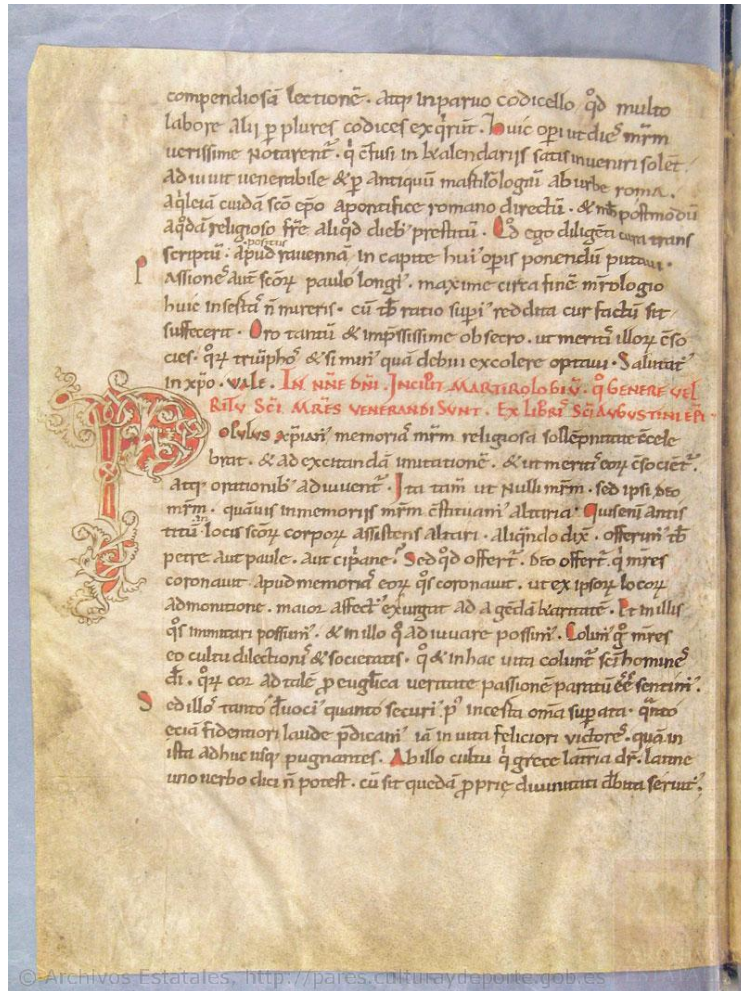 compendiosā lectionē. atq; in paruo codicello q̊d multo
labore alij ꝑ plures codices exq̊rūt. Huic oꝑi ut dies mr̄m
uerissime notarent᷑. q̇ cōfusi in kalendarijs satis inueniri solent.
adiuuit uenerabile & ꝑ antiquū
aq̇leiā cuidā scō ep̄o a pontifice romano directū. & m̄ postmodū
a q̊dā religioso fr̄e aliq̊d dieb; prestitū. Qd ego diligēti cura trans
positus
scriptū. apud rauennā in capite hui' oꝑis ponendū putaui.
Passiones aut̄ scōꝝ paulo longi'. maxime circa finē
huic insestas n̄ mireris. cū tibi ratio suꝑi' reddita cur factū sit
suffecerit. Oro tantū & imp̄ssissime obsecro. ut meritis illoꝝ cōso
cies. q̊ꝝ triūphos & si min' quā debui excolere optaui. Salutat᷑
in xp̄o. vale. In nn̄e dn̄i. Incipit martirologiū. q̊ genere vel
ritu sc̄i mr̄es venerandi sunt. Ex libris sc̄i Augustini ep̄i.
Populus xp̄ian' memorias mr̄m religiosa sollēpnitate cōcele
brat. & ad excitandā imitationē. & ut meritis eoꝝ cōsociet᷑.
atq; orationib; adiuuet᷑. Ita tam̄ ut nulli mr̄m. sed ipsi deo
mr̄m. quāuis in memorijs mr̄m cōstituam' altaria. Quis enī antis
titū in locis scōꝝ corpoꝝ assistens altari. aliq̇ndo dix̄. offerim' tibi
petre aut paule. aut cip̄ane? Sed q̊d offert᷑. deo offert᷑. q̇ mr̄es
coronauit. apud memorias eoꝝ q̊s coronauit. ut ex ipsoꝝ locoꝝ
admonitione. maior affect' exurgat ad agēdā karitatē. Et in illis
q̊s imitari possum'. & in illo q̊ adiuuare possim'. Colim' g̊ mr̄es
eo cultu dilectionis & societatis. q̊ & in hac uita colunt᷑ sc̄i homines
dī. q̊ꝝ cor ad talē ꝓ euglica ueritate passionē paratū ēē sentim'.
Sed illos tanto deuoci' quanto securi' p' incerta om̄a suꝑata. q̇nto
eciā fidentiori laude p̄dicam' iā in uita feliciori victores. quā in
ista adhuc usq; pugnantes. Ab illo cultu q̇ grece latria dr̄. latine
uno uerbo dici n̄ potest. cū sit quedā ꝓprię diuinitati debita seruit᷑.